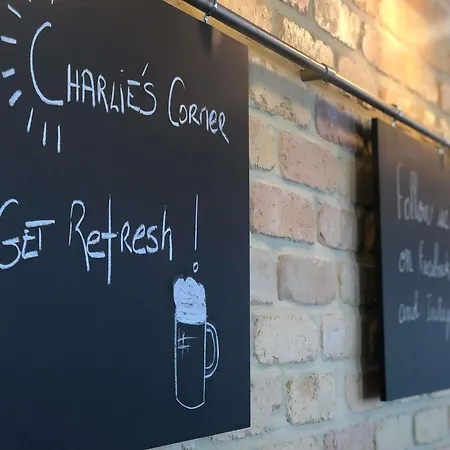 CHARLIE'S CORNER
GET Refresh!
#
Follow us
on Facebook
and Instagram